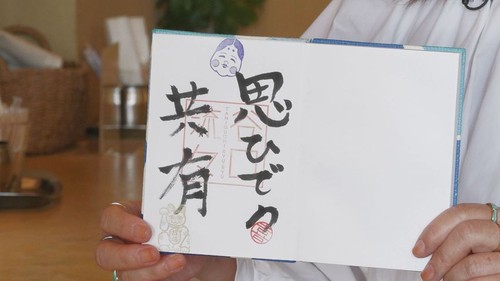 思ひでの
共有